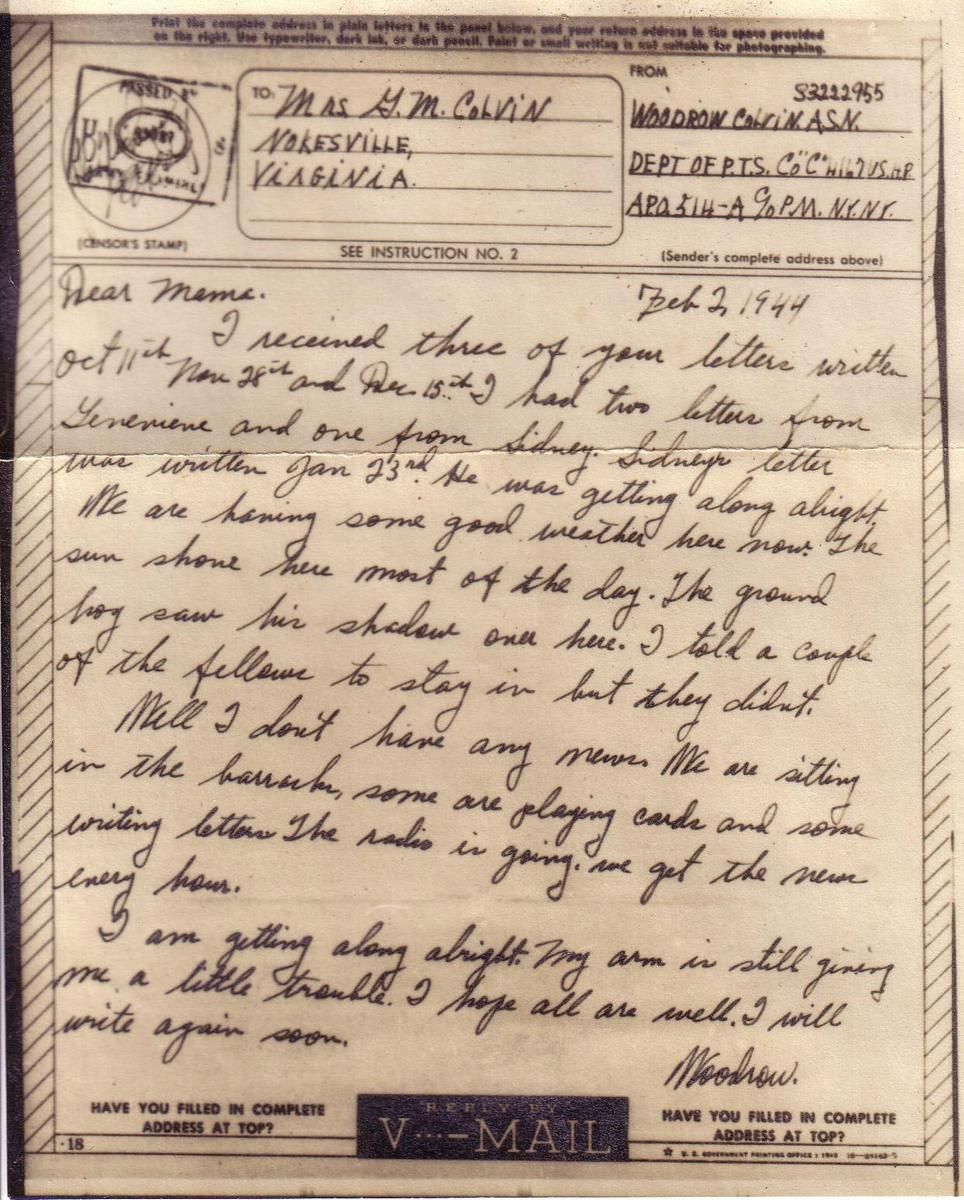 Print the complete address in plain letters in the panel below, and your return address in the space provided
on the right. Use typewriter, dark ink, or dark pencil. Faint or small writing is not suitable for photographing.
PASSED BY
ARMY EXAMINER
(CENSOR'S STAMP)
TO:
MRS G.M. COLVIN
NOKESVILLE,
VIRGINIA.
SEE INSTRUCTION NO. 2
FROM
33222955
WOODROW COLVIN. A.S.N.
DEPT OF P.T.S. CO "C" 4167 U.S.H.P.
APO 514-A % P.M. N.Y. N.Y.
(Sender's complete address above)
Dear Mama.
Feb 2, 1944
I received three of your letters written
Oct 11th Nov 28th and Dec 15th. I had two letters from
Genevieve and one from Sidney. Sidneys letter
was written Jan 23rd. He was getting along alright.
We are having some good weather here now. The
sun shone here most of the day. The ground
hog saw his shadow over here. I told a couple
of the fellows to stay in but they didn't.
Well I don't have any news. We are sitting
in the barracks, some are playing cards and some
writing letters. The radio is going. we get the news
every hour.
I am getting along alright. My arm is still giving
me a little trouble. I hope all are well. I will
write again soon.
Woodrow.
HAVE YOU FILLED IN COMPLETE
ADDRESS AT TOP?
REPLY BY
V···—MAIL
HAVE YOU FILLED IN COMPLETE
ADDRESS AT TOP?
·18
☆ U. S. GOVERNMENT PRINTING OFFICE : 1943